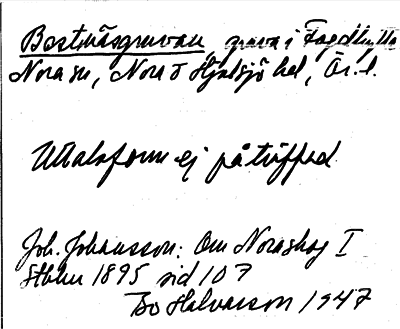 Bastnäsgruvan, gruva i Fagerhytta
Nora sn, Nora o Hjulsjö hd, Ör. l.
Uttalsform ej påträffad
Joh. Johansson: Om Noraskog I
Sthlm 1895 sid 107
Bo Halvarsson 1947